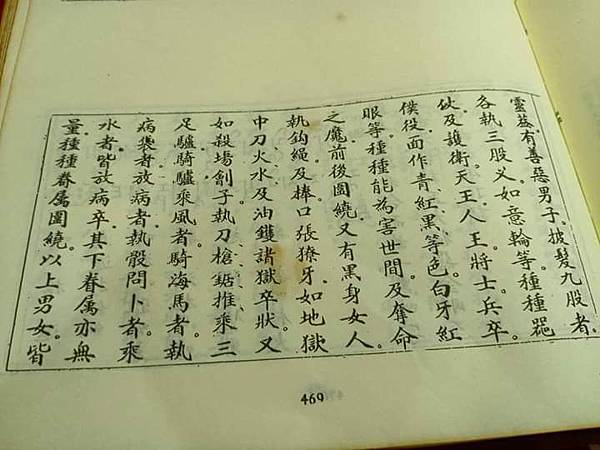 靈茲。有善惡男子。披髮九股者。
各執三股义如意輪等種種噐
仗及護衛。天王人王將士兵卒。
僕役面作青紅黑等色。白牙紅
眼等種種能為害世間及奪命
之魔。前後圍繞。又有黑身女人。
執鈎繩及捧口張獠牙。如地獄
中刀火水及油鑊諸獄卒狀。又
如殺塲劊子。執刀槍鋸推乘三
足驢騎驢乘風者。騎海馬者。執
病褁者。放病者。執骰問卜者。乘
水者。皆放病卒。其下眷属亦無
量種種眷属圍繞。以上男女皆
469